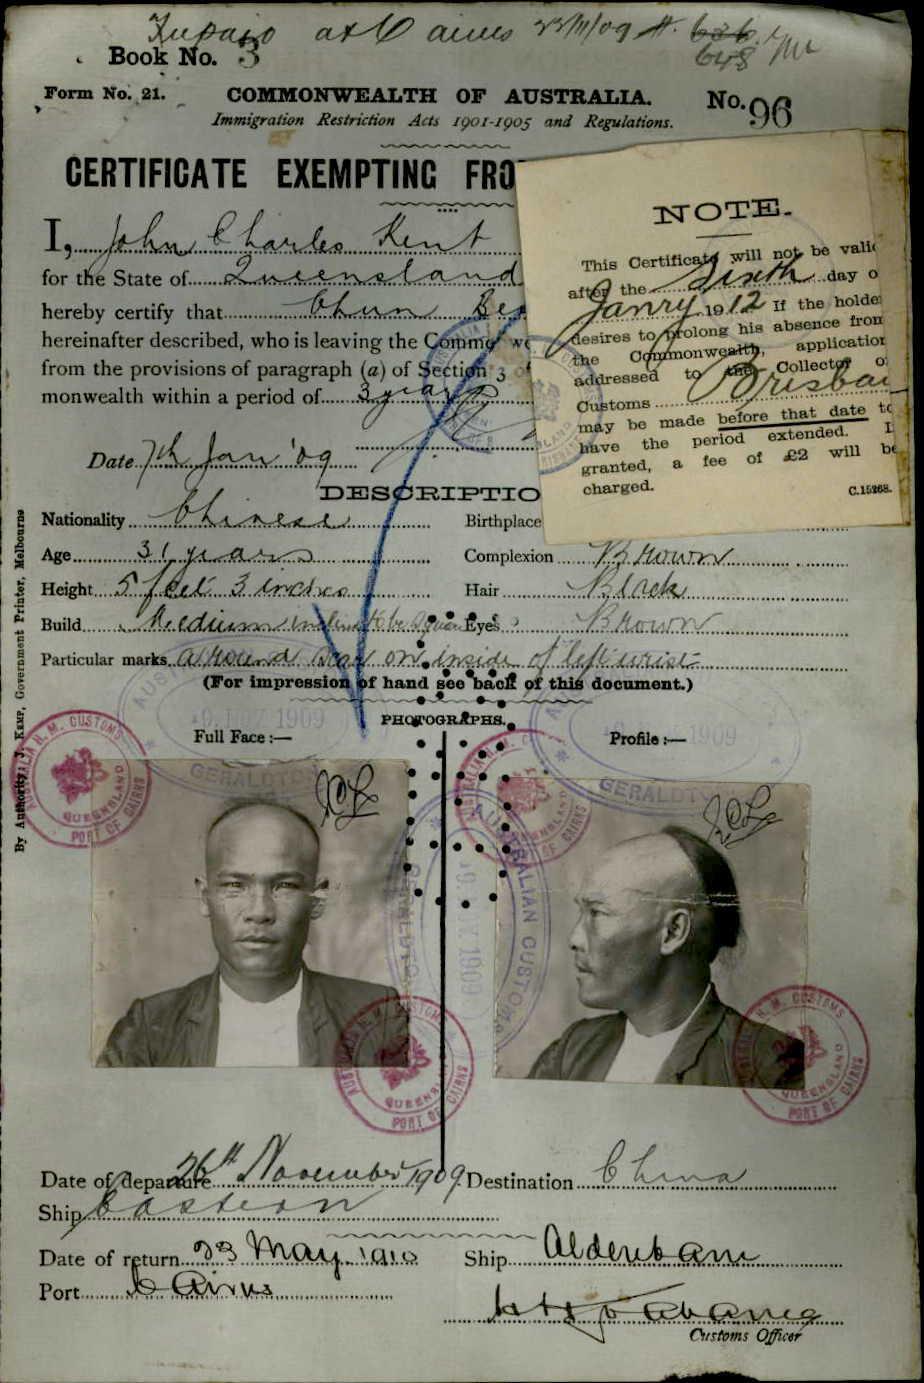 at Cairns 23/11/09
Book No. 3
Form No. 21.
COMMONWEALTH OF AUSTRALIA.
No. 96
Immigration Restriction Acts 1901-1905 and Regulations.
CERTIFICATE EXEMPTING FRO
I, John Charles Kent
for the State of Queensland
hereby certify that Chun
hereinafter described, who is leaving the Commonwe
from the provisions of paragraph (a) of Section 3 o
monwealth within a period of 3 years
Date 7th Jan '09
NOTE.
This Certificate will not be valid
after the Sixth day o
Janry 1912 If the holder
desires to prolong his absence from
the Commonwealth, application
addressed to the Collector of
Customs Brisban
may be made before that date to
have the period extended. I
granted, a fee of £2 will be
charged.
C.15268.
DESCRIPTIO
Nationality Chinese
Birthplace
Age 31 years
Complexion Brown
Height 5 feet 3 inches
Hair Black
Build Medium inclined to be square
Eyes Brown
Particular marks a round scar on inside of left wrist
(For impression of hand see back of this document.)
PHOTOGRAPHS.
Full Face:—
Profile:—
By Authority: J. Kemp, Government Printer, Melbourne
AUSTRALIA H. M. CUSTOMS
QUEENSLAND
PORT OF CAIRNS
GERALDTON
1909
AUSTRALIAN CUSTOMS
1909
GERALDTON
Date of departure 26th November 1909
Destination China
Ship Eastern
Date of return 23 May 1910
Ship Aldenham
Port Cairns
Customs Officer